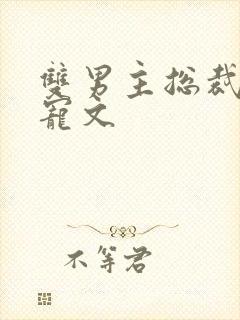 雙男主总裁
寵文
不等君